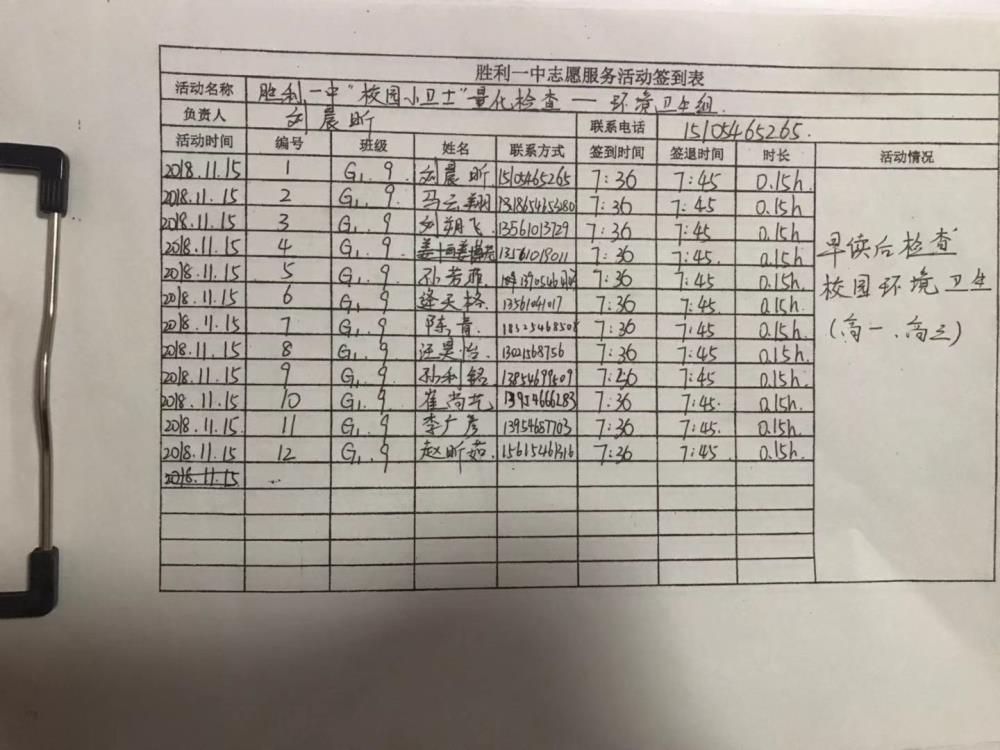 胜利一中志愿服务活动签到表
活动名称 胜利一中"校园小卫士"量化检查—环境卫生组.
负责人 刘晨昕 联系电话 15105465265.
活动时间 编号 班级 姓名 联系方式 签到时间 签退时间 时长 活动情况
2018.11.15 1 G1.9 刘晨昕 15105465265 7:36 7:45 0.15h
2018.11.15 2 G1.9 马云翔 7:36 7:45 0.15h
2018.11.15 3 G1.9 刘朔飞 13561013729 7:36 7:45 0.15h
2018.11.15 4 G1.9 7:36 7:45 0.15h
2018.11.15 5 G1.9 孙芳雅 7:36 7:45 0.15h
2018.11.15 6 G1.9 逄天格 13561041017 7:36 7:45 0.15h
2018.11.15 7 G1.9 陈青. 7:36 7:45 0.15h
2018.11.15 8 G1.9 汪昊怡. 1302568756 7:36 7:45 0.15h.
2018.11.15 9 G1.9 孙利铭 13854699509 7:36 7:45 0.15h.
2018.11.15 10 G1.9 崔尚艺 7:36 7:45. 0.15h.
2018.11.15 11 G1.9 李广彦 13954687703 7:36 7:45. 0.15h.
2018.11.15 12 G1.9 赵昕茹. 7:36 7:45. 0.15h.
2018.11.15
早读后检查
校园环境卫生
(高一、高三)